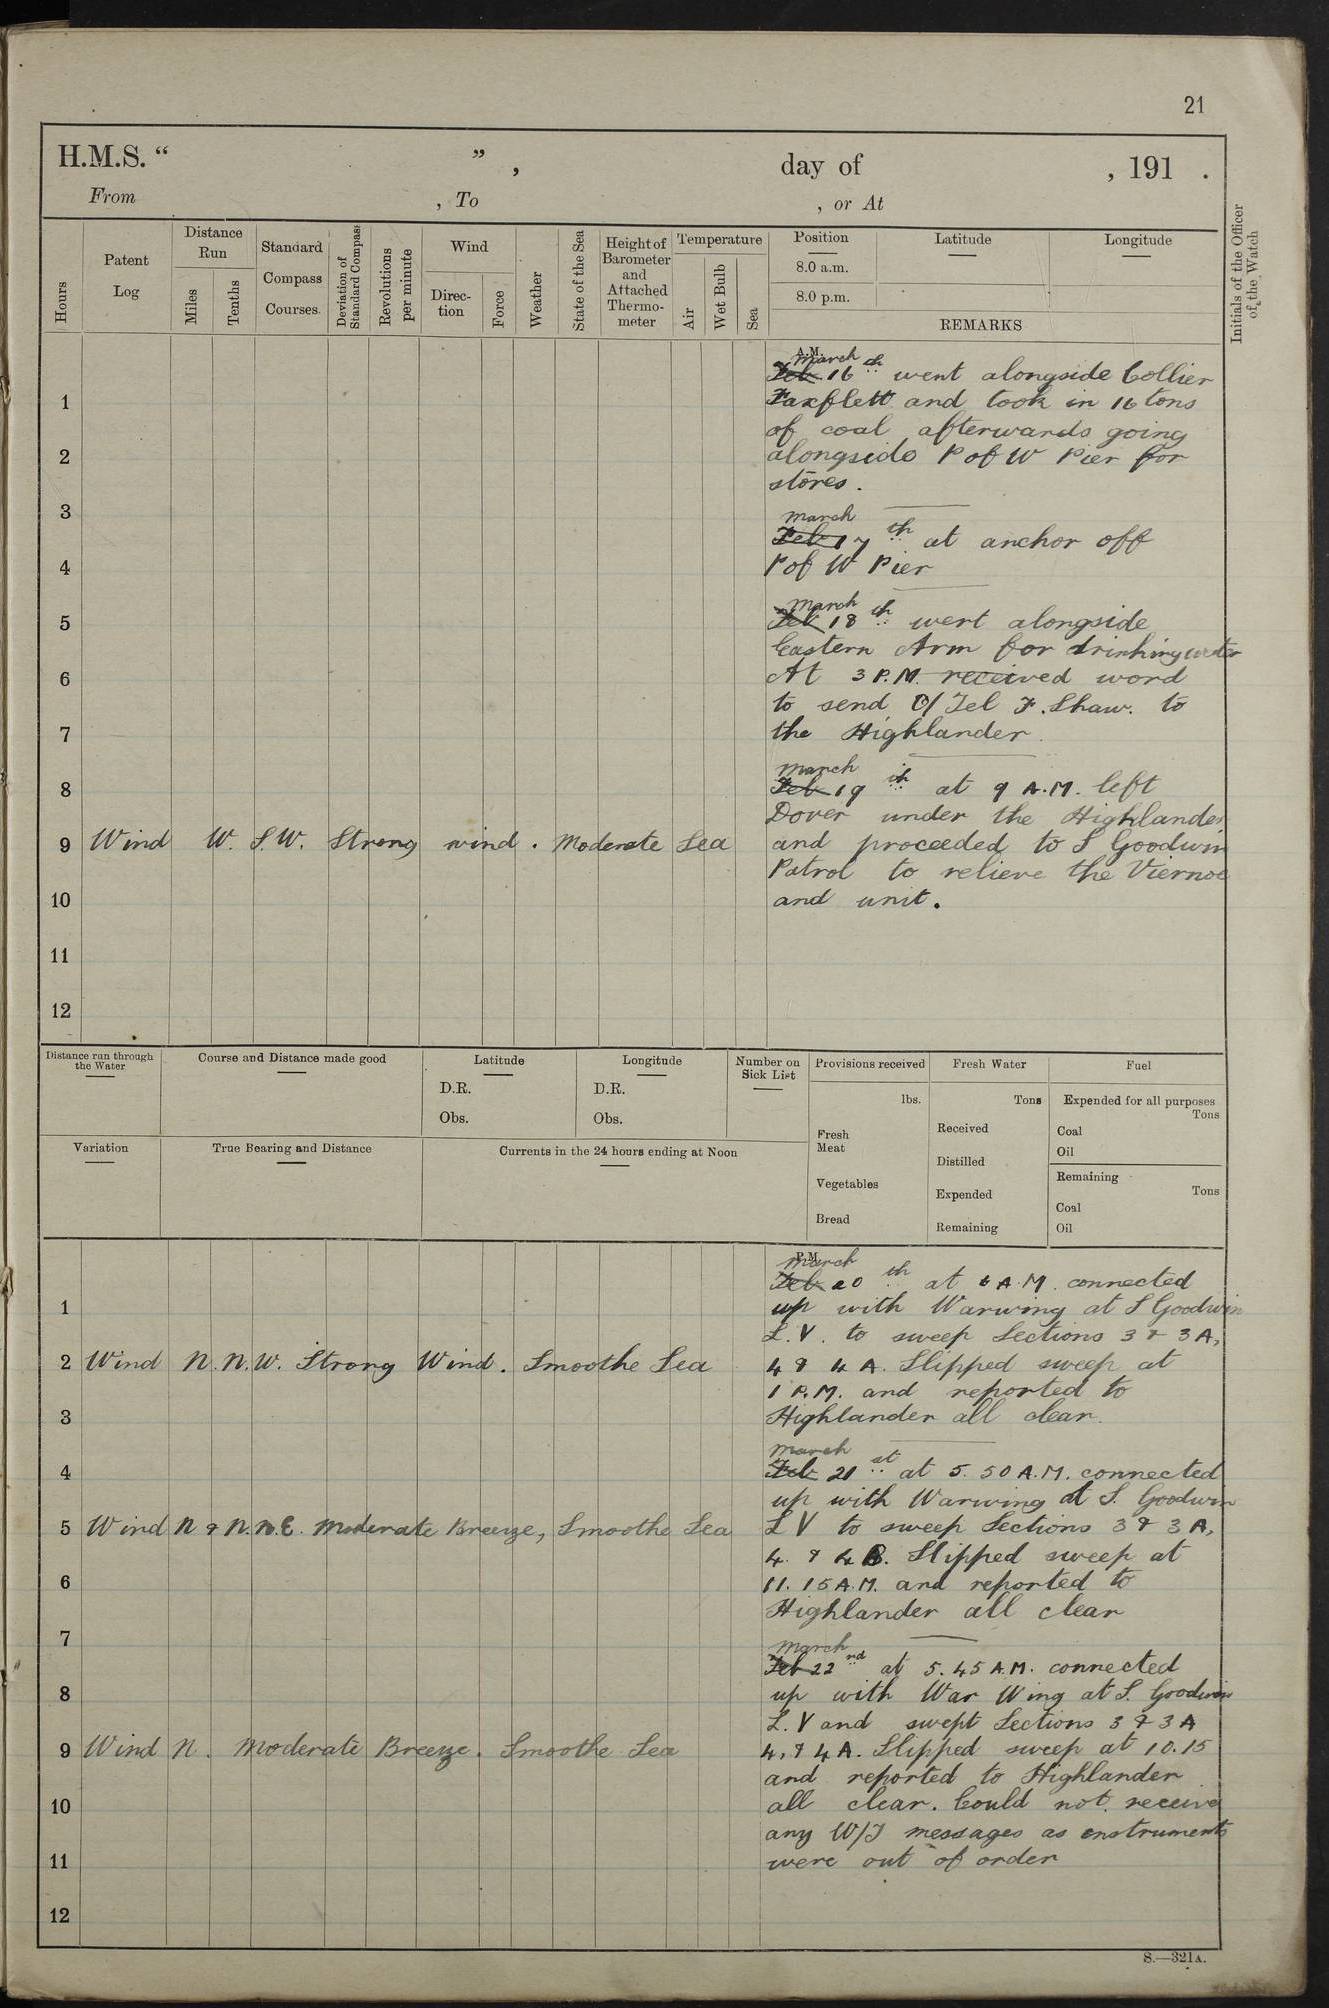 21
H.M.S. “ ” , day of , 191 .
From , To , or At
Hours
Patent Log
Distance Run
Miles
Tenths
Standard Compass Courses.
Deviation of Standard Compass
Revolutions per minute
Wind
Direction
Force
Weather
State of the Sea
Height of Barometer and Attached Thermometer
Temperature
Air
Wet Bulb
Sea
Position
Latitude
Longitude
8.0 a.m.
8.0 p.m.
REMARKS
Initials of the Officer of the Watch
A.M.
March
Feb 16th went alongside Collier
1
Faxflett and took in 16 tons
of coal afterwards going
2
alongside P of W Pier for
stores.
3
March
Feb 17th at anchor off
4
P of W Pier
March
5
Feb 18th went alongside
Eastern Arm for drinking water
6
At 3 P.M. received word
to send O/Tel F. Shaw. to
7
the Highlander.
March
8
Feb 19th at 9 A.M. left
Dover under the Highlander
9 Wind W. S.W. Strong wind. Moderate Sea
and proceeded to S Goodwin
Patrol to relieve the Viernoe
10
and unit.
11
12
Distance run through the Water
Course and Distance made good
Latitude
D.R.
Obs.
Longitude
D.R.
Obs.
Number on Sick List
Provisions received
lbs.
Fresh Meat
Vegetables
Bread
Fresh Water
Tons
Received
Distilled
Expended
Remaining
Fuel
Expended for all purposes
Tons
Coal
Oil
Remaining
Tons
Coal
Oil
Variation
True Bearing and Distance
Currents in the 24 hours ending at Noon
P.M.
March
Feb 20th at 6 A.M. connected
1
up with Warwing at S Goodwin
L.V. to sweep Sections 3 & 3A,
2 Wind N.N.W. Strong Wind. Smoothe Sea
4 & 4A. Slipped sweep at
1 P.M. and reported to
3
Highlander all clear.
March
4
Feb 21st at 5.50 A.M. connected
up with Warwing at S. Goodwin
5 Wind N & N.N.E. Moderate Breeze, Smoothe Sea
L V to sweep Sections 3 & 3A,
4. & 4B. Slipped sweep at
6
11.15 A.M. and reported to
Highlander all clear
7
March
Feb 22nd at 5.45 A.M. connected
8
up with War Wing at S. Goodwin
L.V and swept Sections 3 & 3A
9 Wind N. Moderate Breeze. Smoothe Sea
4, & 4A. Slipped sweep at 10.15
and reported to Highlander
10
all clear. Could not receive
any W/T messages as instruments
11
were out of order
12
S.—321A.